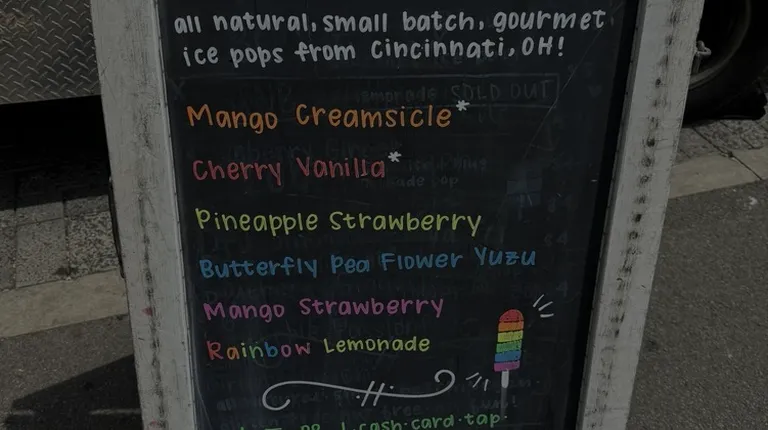 all natural, small batch, gourmet
ice pops from Cincinnati, OH!
SOLD OUT
Mango Creamsicle*
Cherry Vanilla*
Pineapple Strawberry
Butterfly Pea Flower Yuzu
Mango Strawberry
Rainbow Lemonade
cash·card·tap·